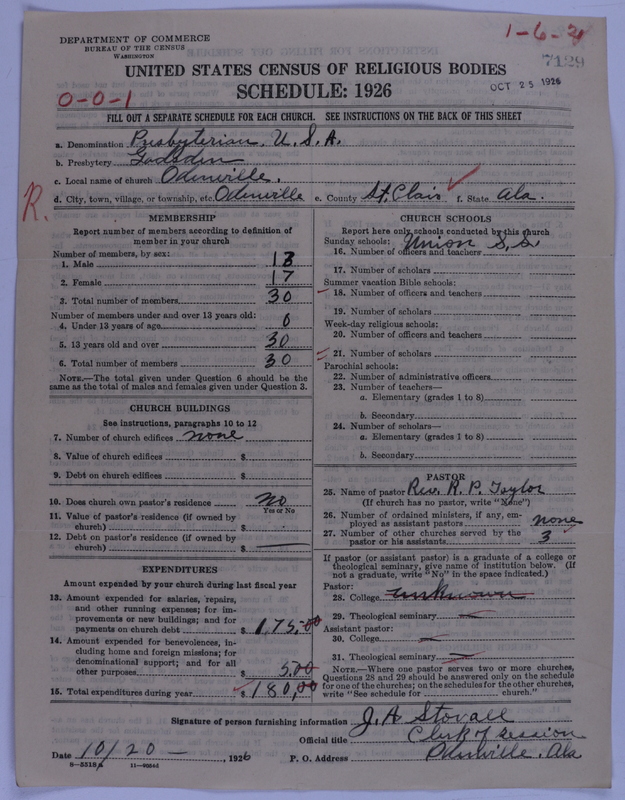 DEPARTMENT OF COMMERCE
BUREAU OF THE CENSUS
WASHINGTON
1-6-21
7129
UNITED STATES CENSUS OF RELIGIOUS BODIES
OCT 25 1926
SCHEDULE: 1926
0-0-1
FILL OUT A SEPARATE SCHEDULE FOR EACH CHURCH. SEE INSTRUCTIONS ON THE BACK OF THIS SHEET
a. Denomination Presbyterian, U. S. A.
b. Presbytery Gadsden
c. Local name of church Odenville.
d. City, town, village, or township, etc. Odenville e. County St. Clair f. State Ala.
R.
MEMBERSHIP
Report number of members according to definition of
member in your church
Number of members, by sex:
1. Male 13
2. Female 17
3. Total number of members 30
Number of members under and over 13 years old:
4. Under 13 years of age 0
5. 13 years old and over 30
6. Total number of members 30
NOTE.—The total given under Question 6 should be the
same as the total of males and females given under Question 3.
CHURCH BUILDINGS
See instructions, paragraphs 10 to 12
7. Number of church edifices none
8. Value of church edifices $
9. Debt on church edifices $
10. Does church own pastor's residence No
Yes or No
11. Value of pastor's residence (if owned by
church) $
12. Debt on pastor's residence (if owned by
church) $
EXPENDITURES
Amount expended by your church during last fiscal year
13. Amount expended for salaries, repairs,
and other running expenses; for im-
provements or new buildings; and for
payments on church debt $ 175.00
14. Amount expended for benevolences, in-
cluding home and foreign missions; for
denominational support; and for all
other purposes $ 5.00
15. Total expenditures during year $ 180.00
CHURCH SCHOOLS
Report here only schools conducted by this church
Sunday schools: Union S. S.
16. Number of officers and teachers
17. Number of scholars
Summer vacation Bible schools:
18. Number of officers and teachers
19. Number of scholars
Week-day religious schools:
20. Number of officers and teachers
21. Number of scholars
Parochial schools:
22. Number of administrative officers
23. Number of teachers—
a. Elementary (grades 1 to 8)
b. Secondary
24. Number of scholars—
a. Elementary (grades 1 to 8)
b. Secondary
PASTOR
25. Name of pastor Rev. R. P. Taylor
(If church has no pastor, write "None")
26. Number of ordained ministers, if any, em-
ployed as assistant pastors none
27. Number of other churches served by the
pastor or his assistants 3
If pastor (or assistant pastor) is a graduate of a college or
theological seminary, give name of institution below. (If
not a graduate, write "No" in the space indicated.)
Pastor:
28. College unknown
29. Theological seminary
Assistant pastor:
30. College
31. Theological seminary
NOTE.—Where one pastor serves two or more churches,
Questions 28 and 29 should be answered only on the schedule
for one of the churches; on the schedules for the other churches,
write "See schedule for church."
Signature of person furnishing information J. A. Stovall
Official title Clerk of session
Date 10/20 , 1926 P. O. Address Odenville, Ala